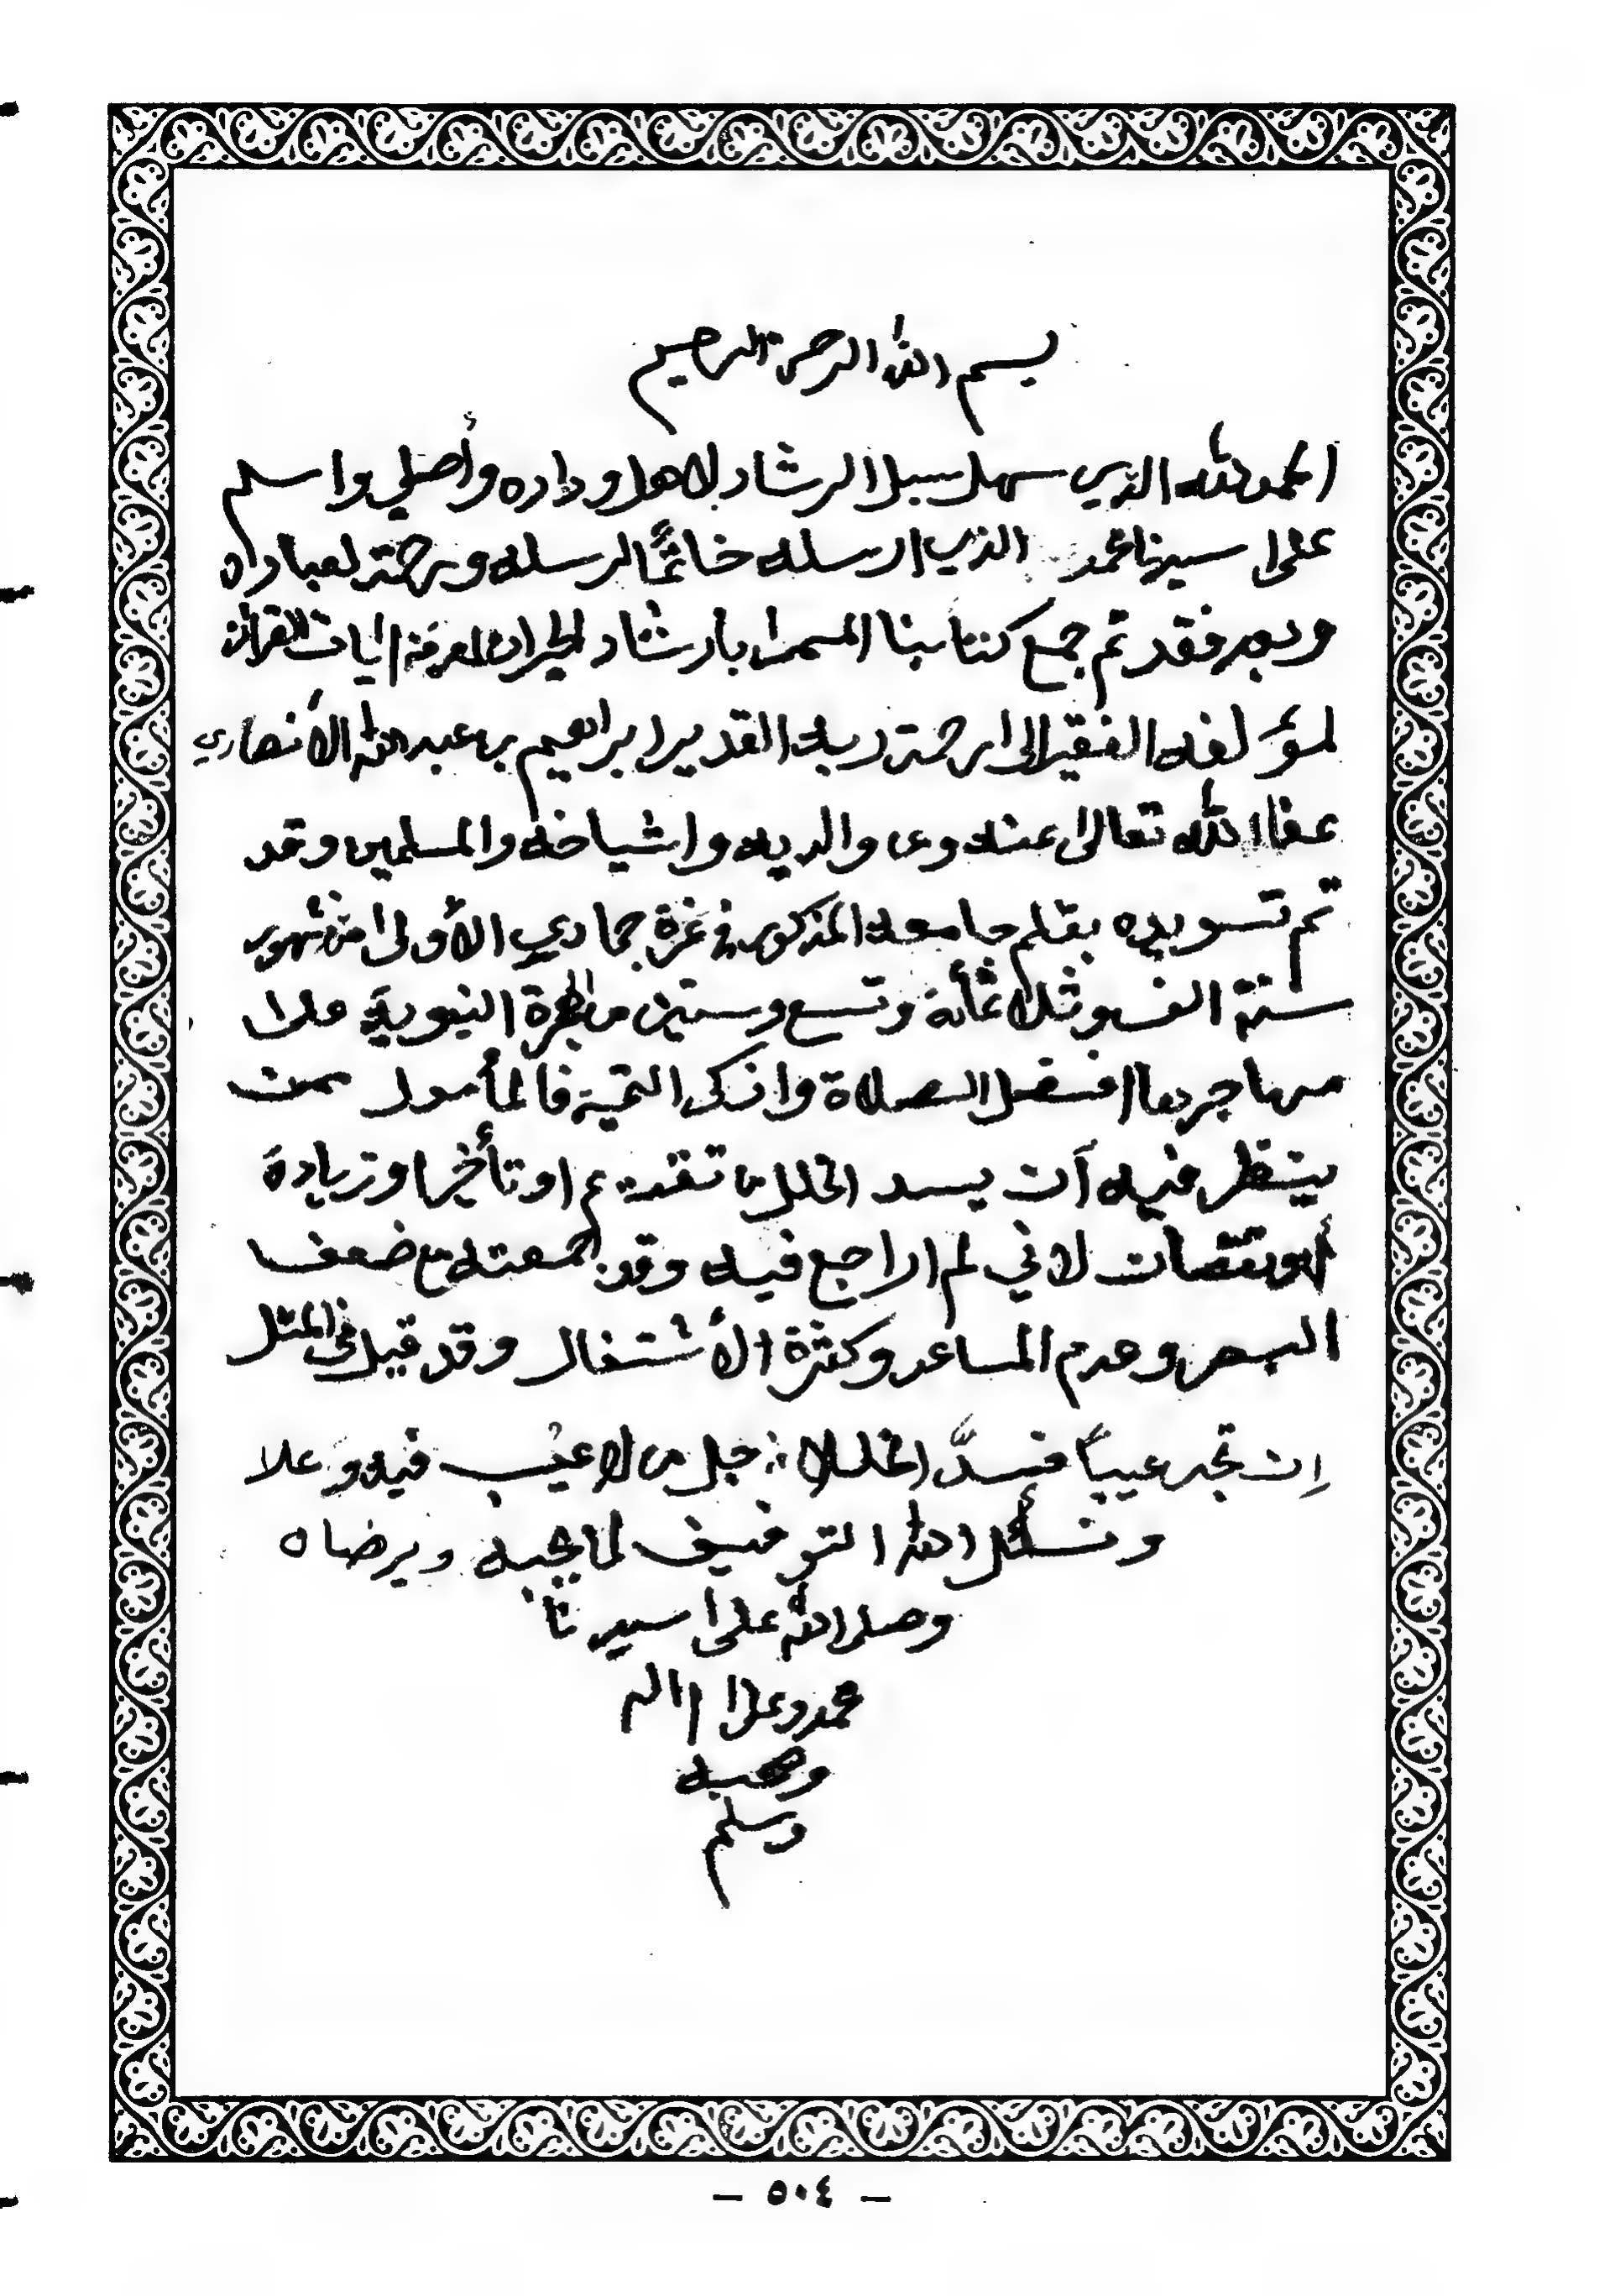 بسم الله الرحمن الرحيم
الحمد لله الذي سهل سبل الرشاد لاهل وداده وأصلي واسلم
على سيدنا محمد الذي ارسله خاتمًا لرسله ورحمة لعباده
وبعد فقد تم جمع كتابنا المسمى بارشاد الحيران لمعرفة آيات القرآن
لمؤلفه الفقير الى رحمة ربه القدير ابراهيم بن عبد الله الأنصاري
عفا الله تعالى عنه وعن والديه واشياخه والمسلمين وقد
تم تسويده بقلم جامعه المذكور في غرة جمادي الأولى من شهور
سنة الف وثلاثمأة وتسع وستين من الهجرة النبوية على
مهاجرها افضل الصلاة وازكى التحية فالمأمول ممن
ينظر فيه أن يسد الخلل من تقديم او تأخير او زيادة
أو نقصان لاني لم اراجع فيه وقد جمعته مع ضعف
البصر وعدم المساعد وكثرة الأشتغال وقد قيل في المثل
إن تجد عيبًا فسدَّ الخللا : جل من لا عيب فيه وعلا
ونسأل الله التوفيق لما يحبه ويرضاه
وصلى الله على سيدنا
محمد وعلى اله
وصحبه
وسلم
– ٥٠٤ –